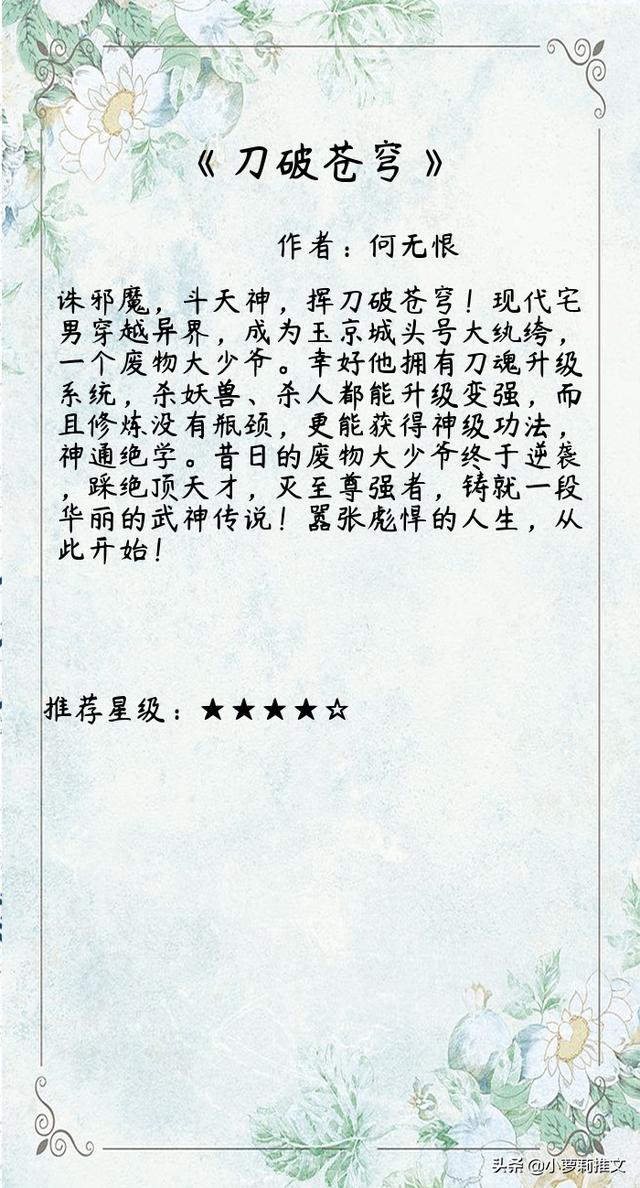 《刀破苍穹》
作者：何无恨
诛邪魔，斗天神，挥刀破苍穹！现代宅
男穿越异界，成为玉京城头号大纨绔，
一个废物大少爷。幸好他拥有刀魂升级
系统，杀妖兽、杀人都能升级变强，而
且修炼没有瓶颈，更能获得神级功法，
神通绝学。昔日的废物大少爷终于逆袭
，踩绝顶天才，灭至尊强者，铸就一段
华丽的武神传说！嚣张彪悍的人生，从
此开始！
推荐星级：★★★★☆
头条 @小萝莉推文